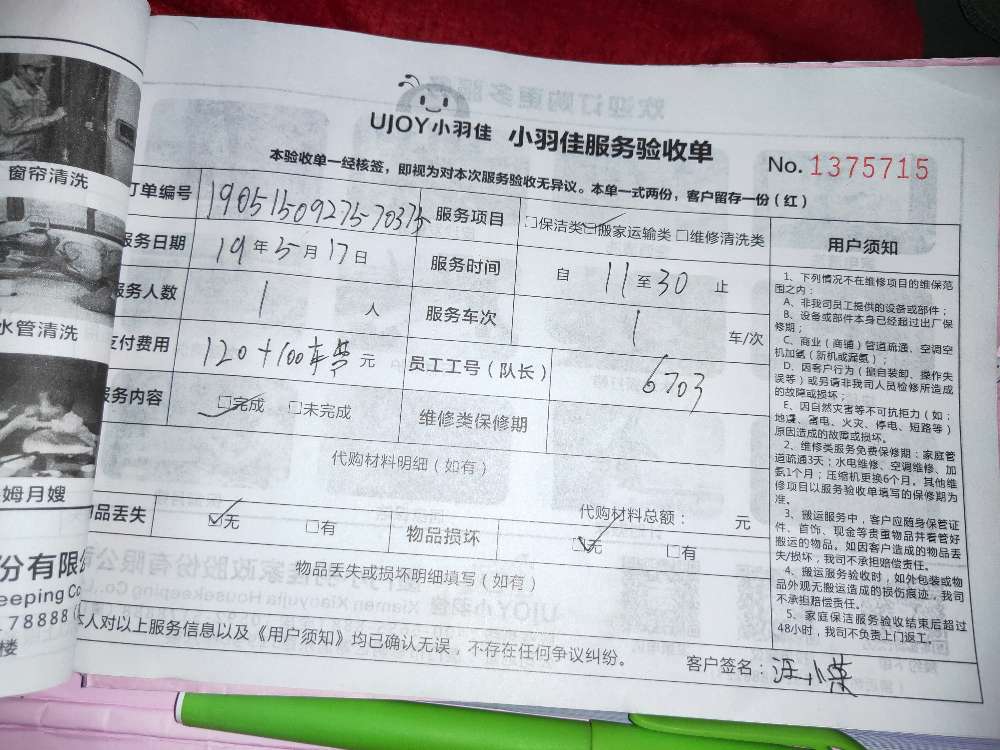 UJOY小羽佳 小羽佳服务验收单
No. 1375715
本验收单一经核签，即视为对本次服务验收无异议。本单一式两份，客户留存一份（红）
订单编号 1905150927570375 服务项目 □保洁类 ☑搬家运输类 □维修清洗类
服务日期 19年5月17日 服务时间 自 11至30 止
服务人数 1 人 服务车次 1 车/次
支付费用 120+100车费 元 员工工号（队长） 6703
服务内容 ☑完成 □未完成 维修类保修期
代购材料明细（如有）
代购材料总额： 元
物品丢失 ☑无 □有 物品损坏 ☑无 □有
物品丢失或损坏明细填写（如有）
本人对以上服务信息以及《用户须知》均已确认无误，不存在任何争议纠纷。
客户签名：汪小荣
用户须知
1、下列情况不在维修项目的维保范
围之内：
A、非我司员工提供的设备或部件；
B、设备或部件本身已经超过出厂保
修期；
C、商业（商铺）管道疏通、空调空
机加氨（新机或漏氨）；
D、因客户行为（擅自装卸、操作失
误等）或另请非我司人员检修所造成
的故障或损坏；
E、因自然灾害等不可抗拒力（如：
地震、雷电、火灾、停电、短路等）
原因造成的故障或损坏。
2、维修类服务免费保修期：家庭管
道疏通3天；水电维修、空调维修、加
氨1个月；压缩机更换6个月。其他维
修项目以服务验收单填写的保修期为
准。
3、搬运服务中，客户应随身保管证
件、首饰、现金等贵重物品并看管好
搬运的物品。如因客户造成的物品丢
失/损坏，我司不承担赔偿责任。
4、搬运服务验收时，如外包装或物
品外观无搬运造成的损伤痕迹，我司
不承担赔偿责任。
5、家庭保洁服务验收结束后超过
48小时，我司不负责上门返工。
窗帘清洗
水管清洗
姆月嫂
份有限公
eeping Co
78888
楼